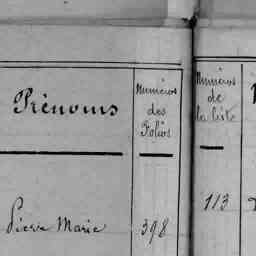 Prénoms
Numéros
des
Folios
Numéros
de
la liste
Pierre Marie
398
113